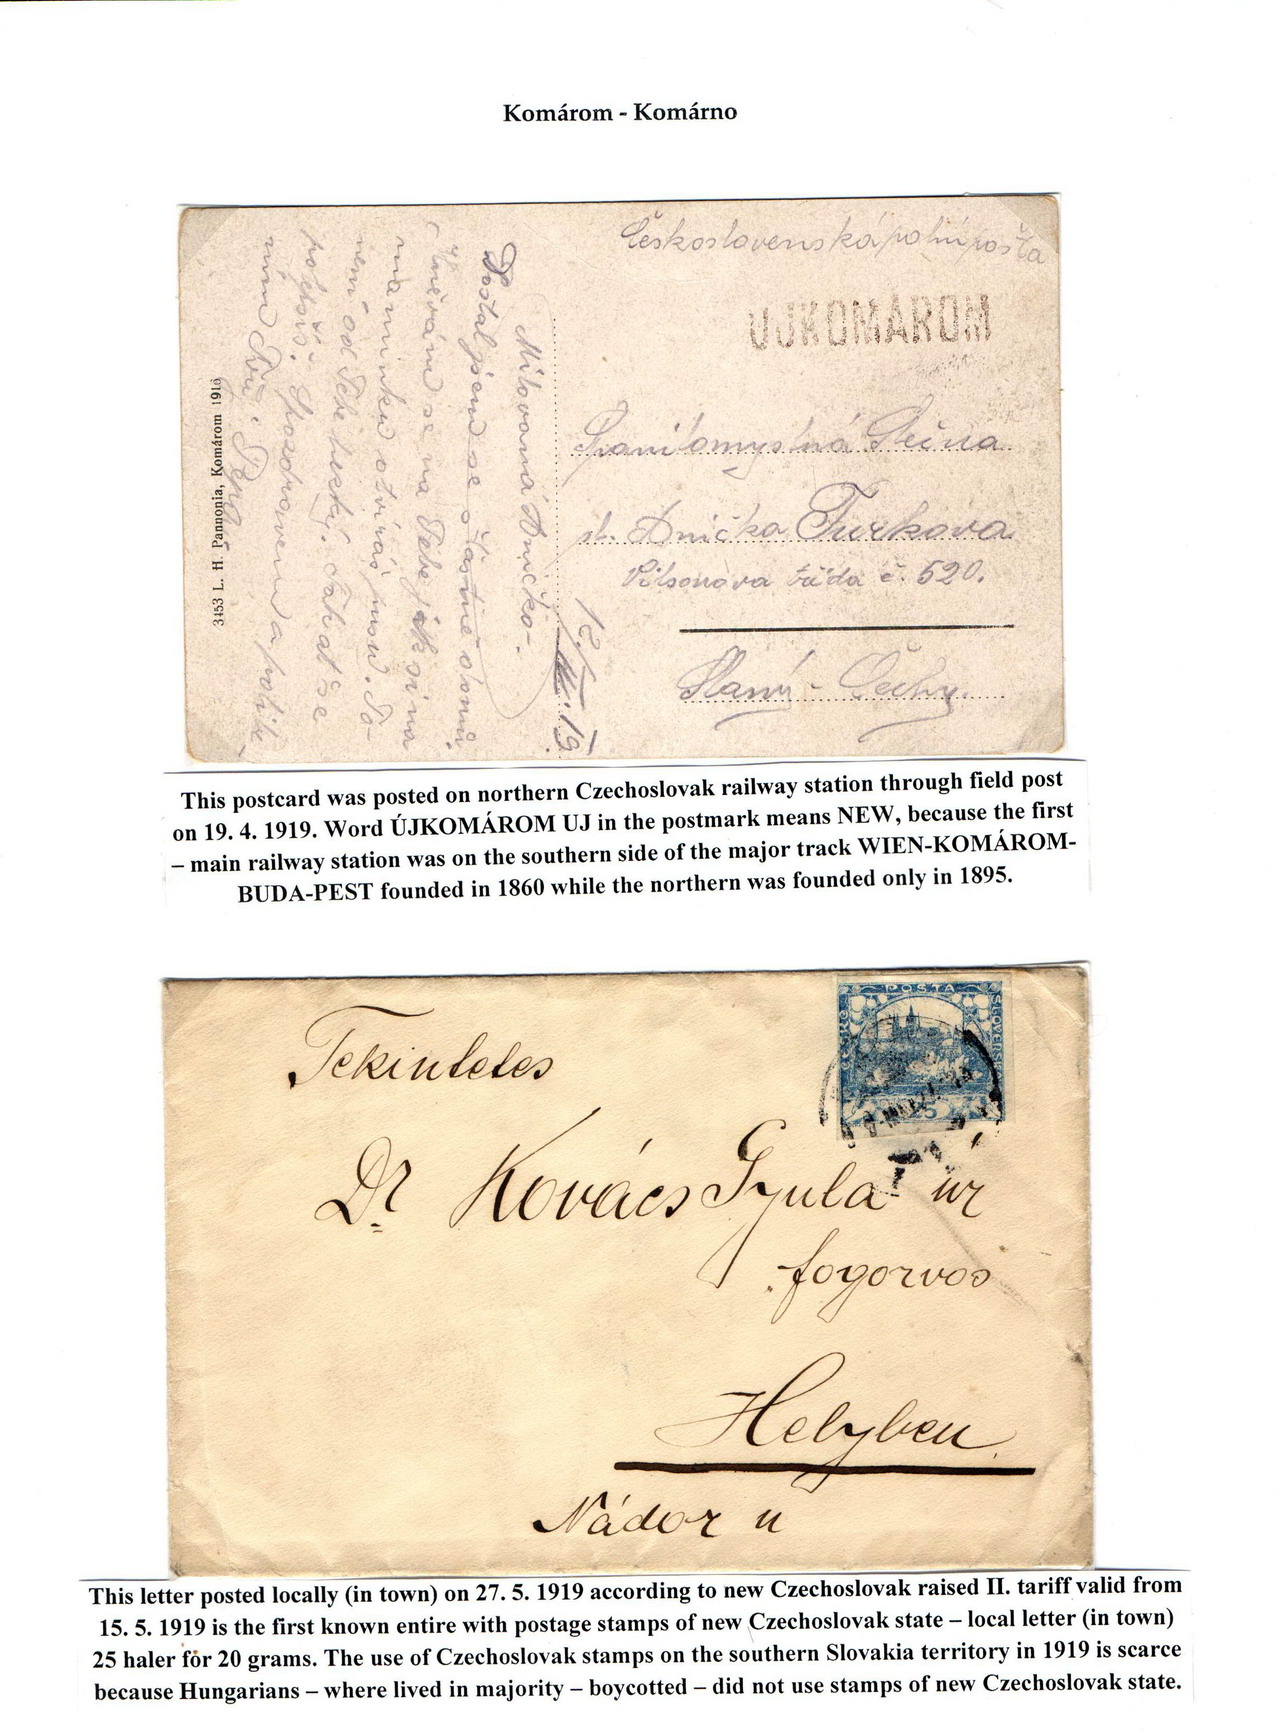 Komárom - Komárno
Československá polní pošta
UJKOMAROM
Milovaná Aničko-.
Dostal jsem se šťastně domů
na Tebe jak si na
maminku
od Tebe hezký.
Pozdravení a políbe-
ní
12. 19
3453 L. H. Pannonia, Komárom 1916
Slečna
sl. Anička Turkova
Vilsonova třída č. 520.
Slaný - Čechy.
This postcard was posted on northern Czechoslovak railway station through field post
on 19. 4. 1919. Word ÚJKOMÁROM UJ in the postmark means NEW, because the first
– main railway station was on the southern side of the major track WIEN-KOMÁROM-
BUDA-PEST founded in 1860 while the northern was founded only in 1895.
POSTA
ČESKO
SLOVENSKÁ
25
Tekintetes
Dr Kovács Gyula úr
fogorvos
Helyben
Nádor u
This letter posted locally (in town) on 27. 5. 1919 according to new Czechoslovak raised II. tariff valid from
15. 5. 1919 is the first known entire with postage stamps of new Czechoslovak state – local letter (in town)
25 haler for 20 grams. The use of Czechoslovak stamps on the southern Slovakia territory in 1919 is scarce
because Hungarians – where lived in majority – boycotted – did not use stamps of new Czechoslovak state.